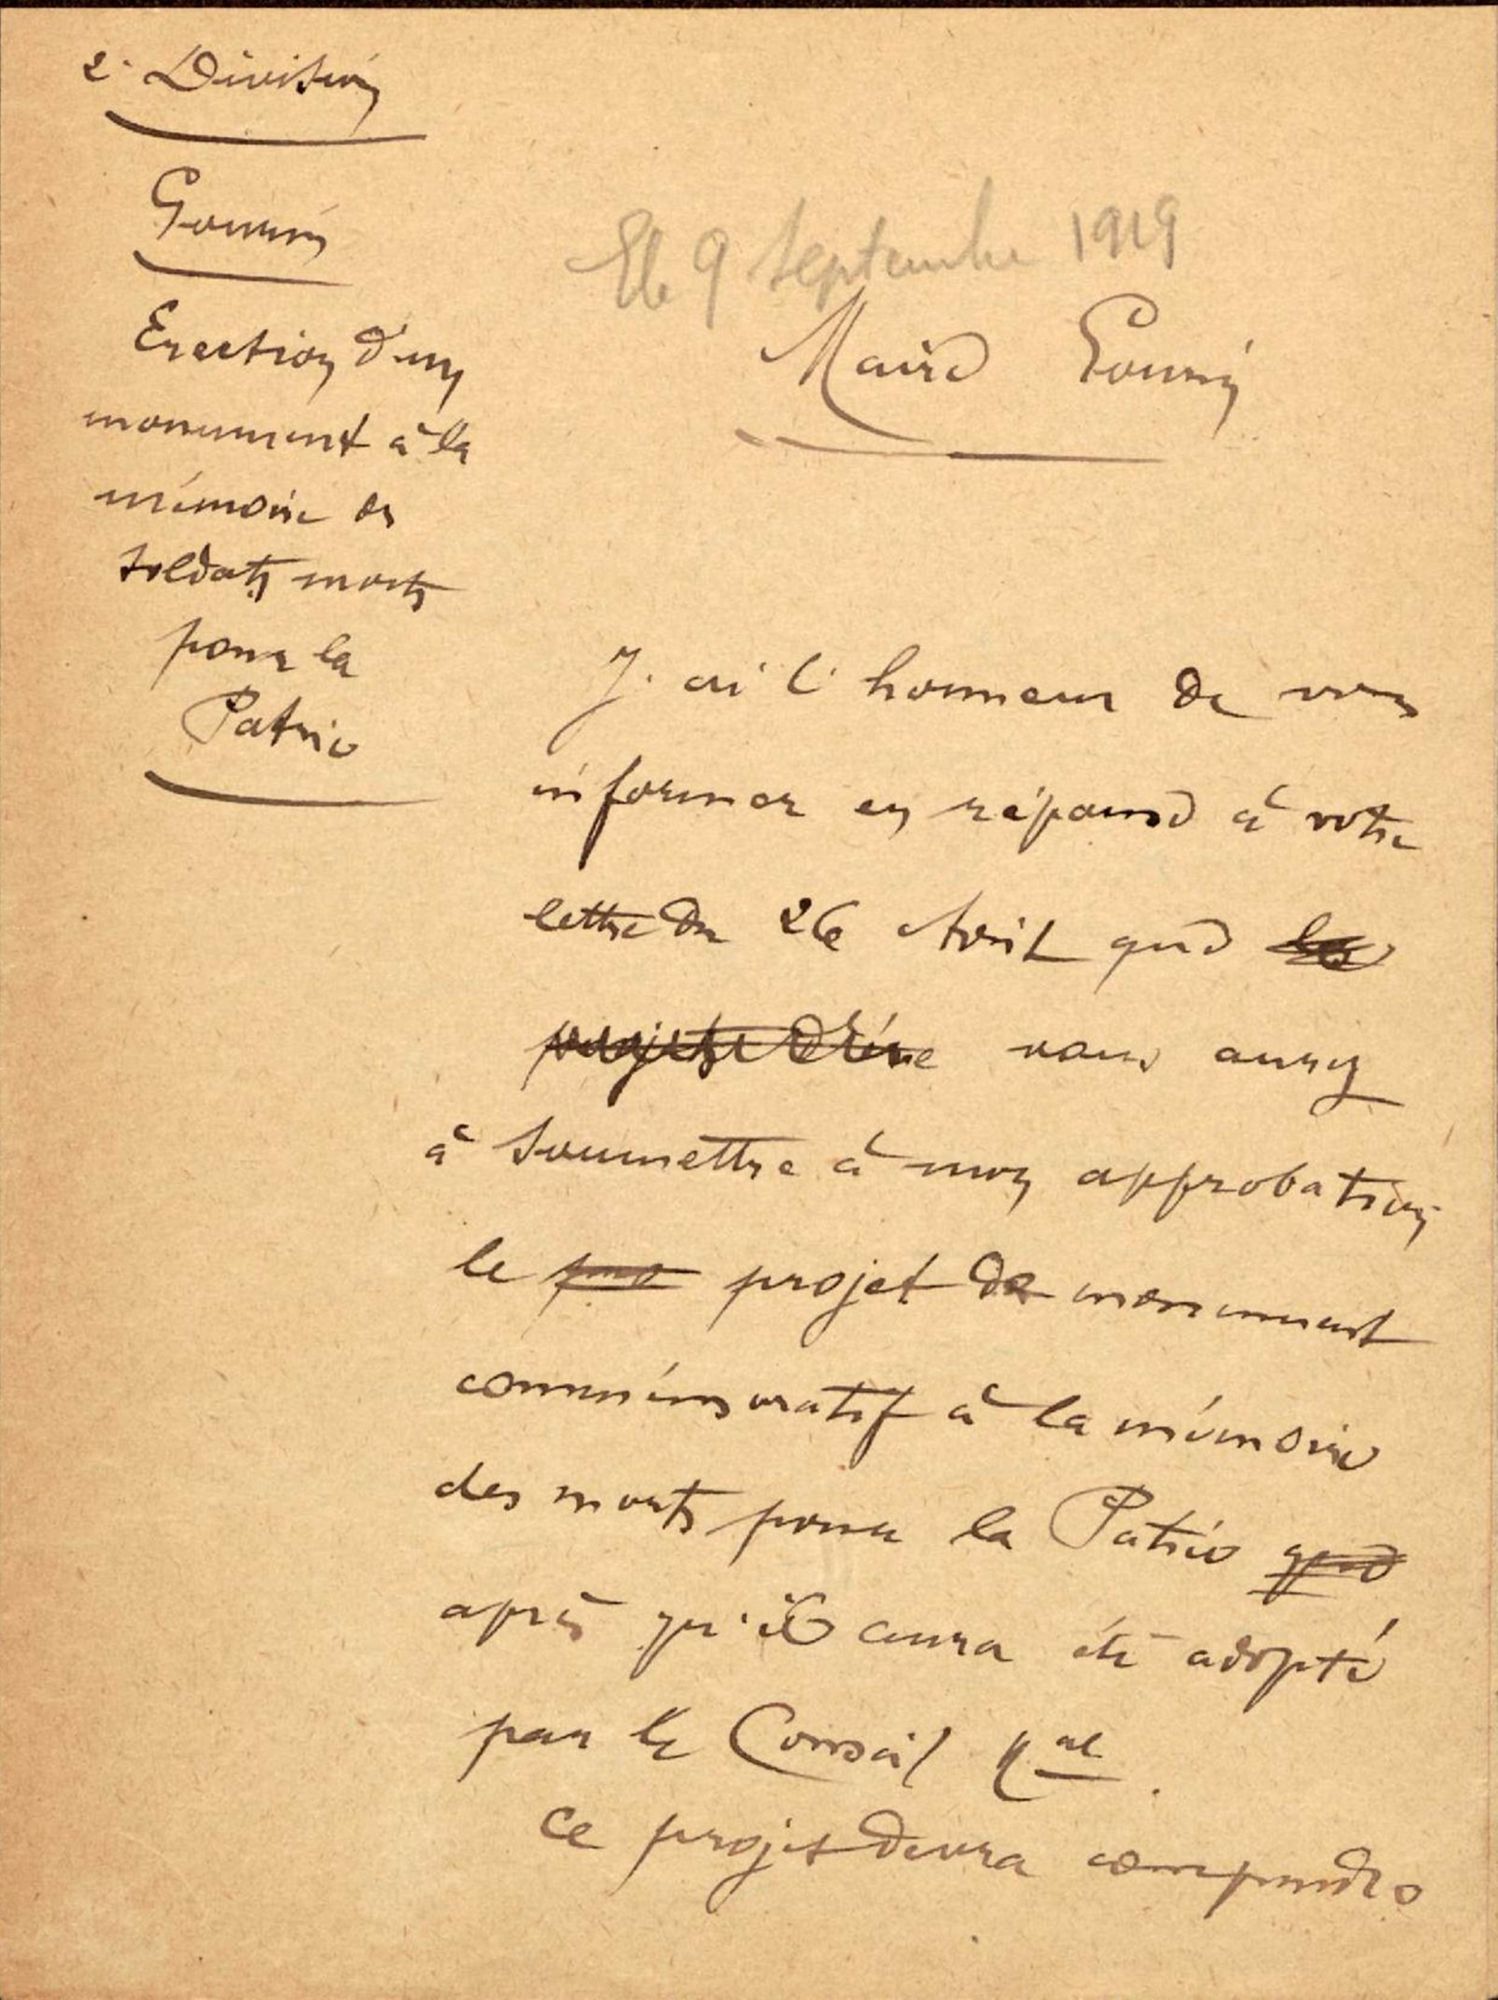 2e Division
Gourin
Erection d'un
monument à la
mémoire des
soldats morts
pour la
Patrie
9 septembre 1919
Maire Gourin
J'ai l'honneur de vous
informer en réponse à votre
lettre du 26 Avril que
vous aurez
à soumettre à mon approbation
le projet de monument
commémoratif à la mémoire
des morts pour la Patrie que
après qu'il aura été adopté
par le Conseil Mal.
Ce projet devra comprendre